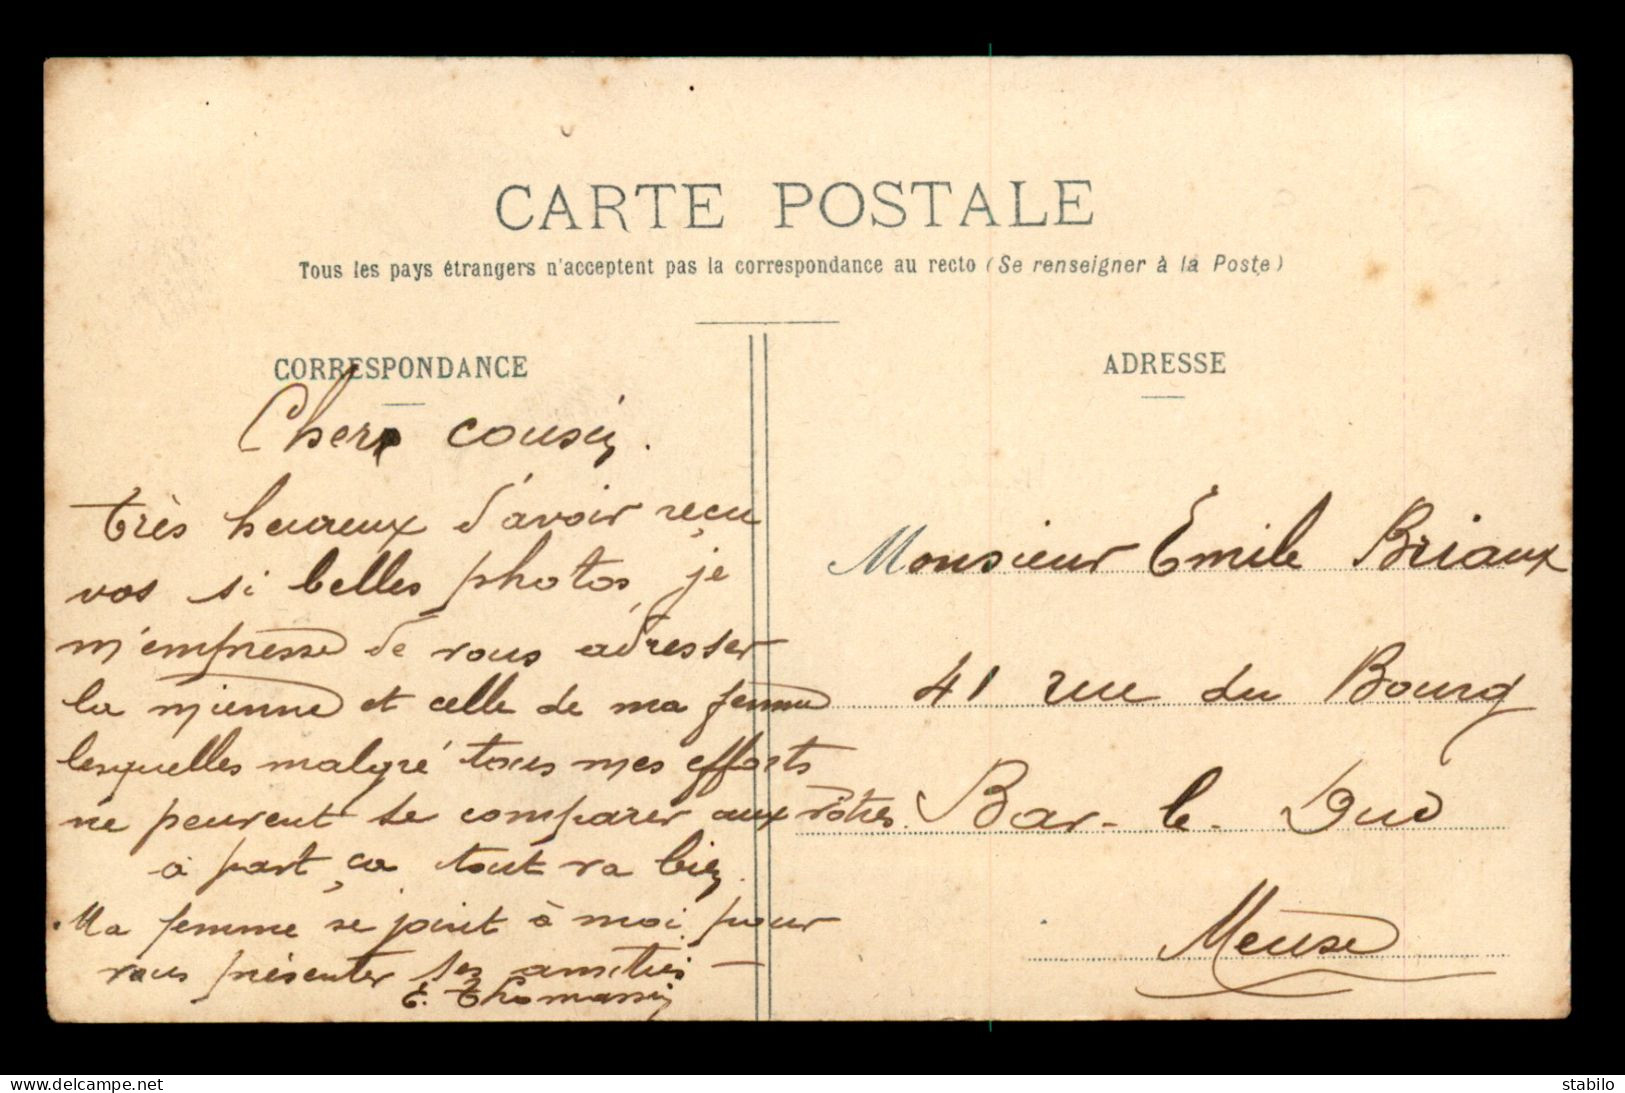 CARTE POSTALE
Tous les pays étrangers n'acceptent pas la correspondance au recto (Se renseigner à la Poste)
CORRESPONDANCE
Cher cousin.
très heureux d'avoir reçu
vos si belles photos, je
m'empresse de vous adresser
la mienne et celle de ma femme
lesquelles malgré tous mes efforts
ne peuvent se comparer aux vôtres.
à part ça tout va bien.
Ma femme se joint à moi pour
vous présenter ses amitiés —
E. Thomassin
ADRESSE
Monsieur Emile Briaux
41 rue du Bourg
Bar-le-Duc
Meuse
delcampe.net
stabilo